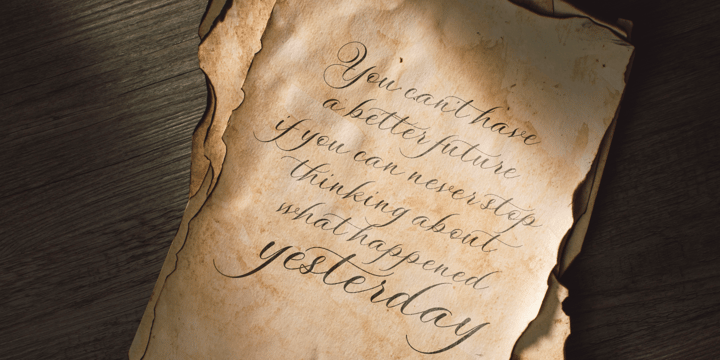 You can't have
a better future
if you can never stop
thinking about
what happened
yesterday